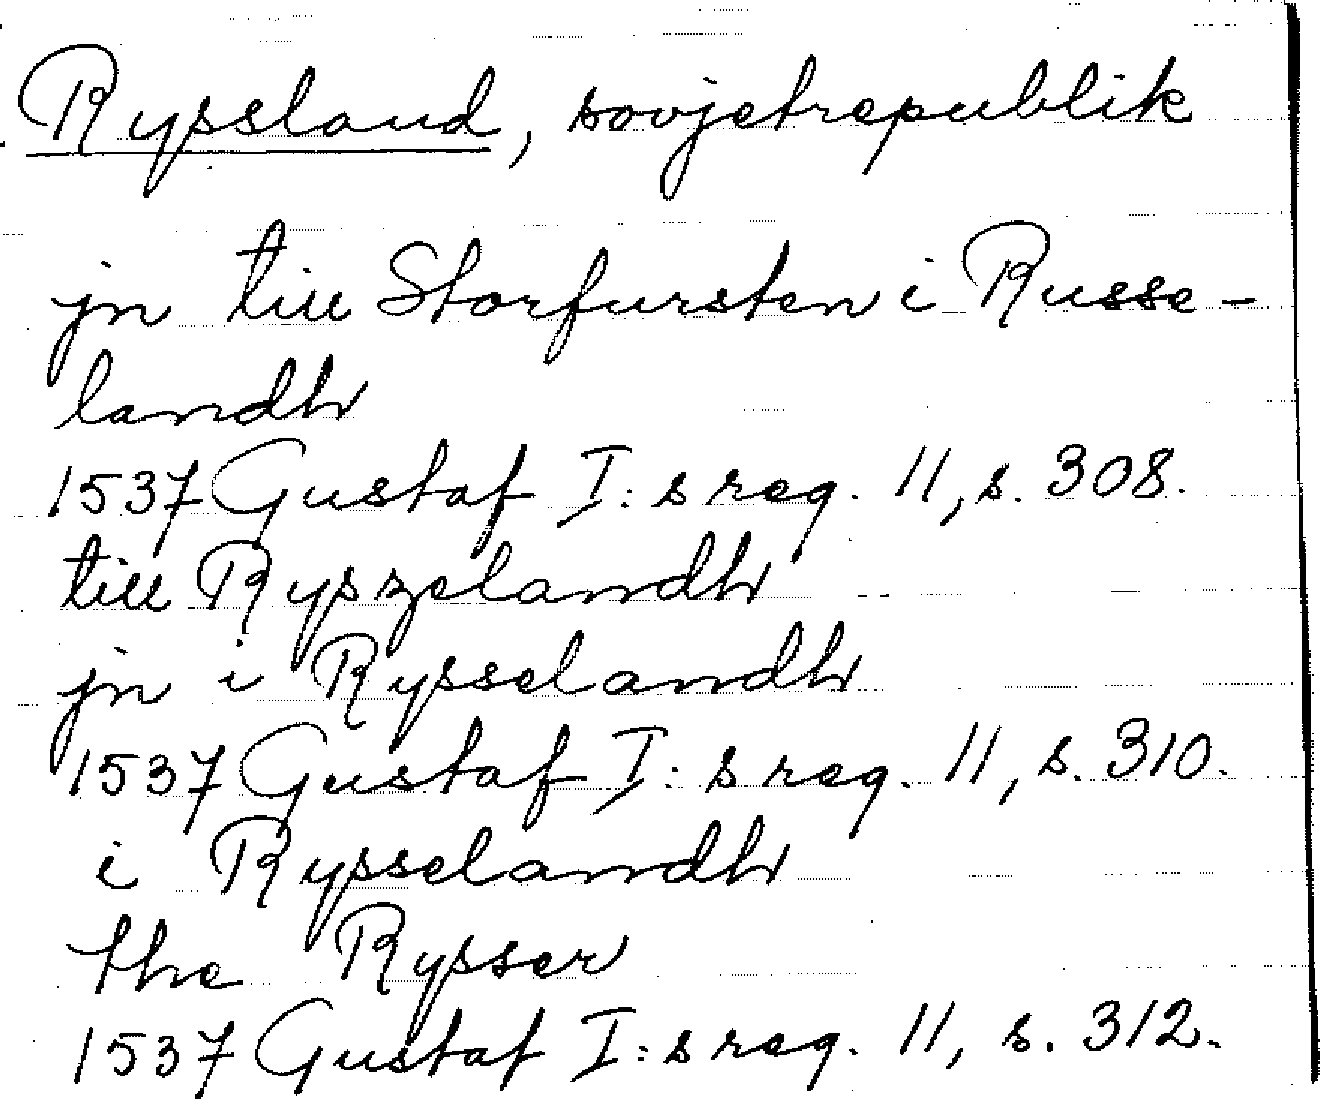 Ryssland, sovjetrepublik
jn till Storfursten i Russe-
landh
1537 Gustaf I:s reg. 11, s. 308.
till Ryszelandh
jn i Rysselandh
1537 Gustaf I:s reg. 11, s. 310.
i Rysselandh
the Rysser
1537 Gustaf I:s reg. 11, s. 312.